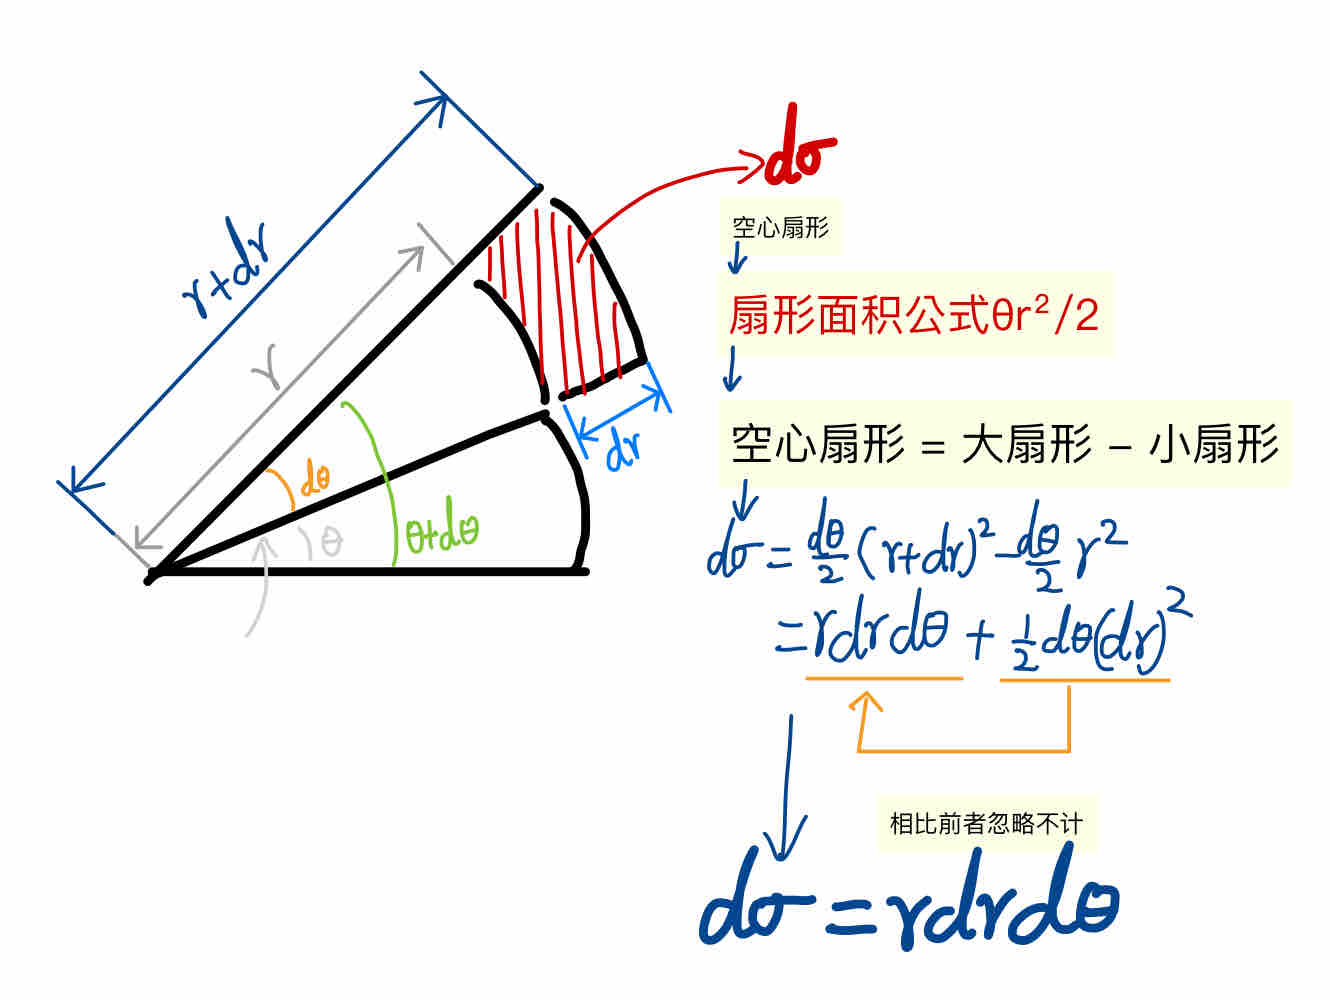 r+dr
r
dθ
θ
θ+dθ
dr
dσ
空心扇形
扇形面积公式θr²/2
空心扇形 = 大扇形 - 小扇形
dσ = dθ/2 (r+dr)² - dθ/2 r²
= rdrdθ + 1/2 dθ(dr)²
相比前者忽略不计
dσ = rdrdθ